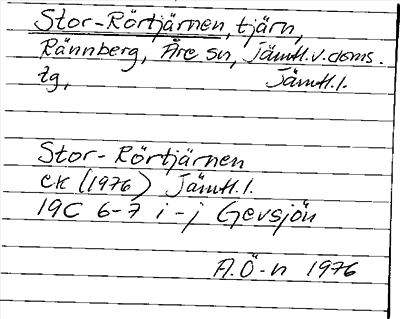 Stor-Rörtjärnen, tjärn,
Rännberg, Åre sn, Jämtl.v.doms.
tg, Jämtl.l.
Stor-Rörtjärnen
ek (1976) Jämtl.l.
19C 6-7 i-j Gevsjön
A.Ö-n 1976